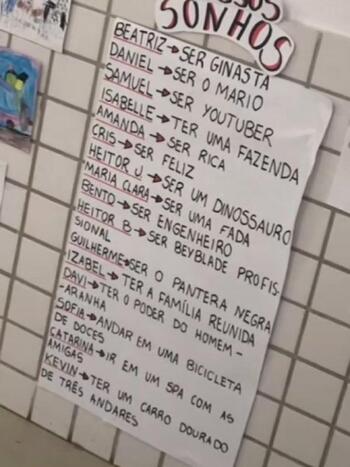 SONHOS
BEATRIZ→SER GINASTA
DANIEL→SER O MARIO
SAMUEL→SER YOUTUBER
ISABELLE→TER UMA FAZENDA
AMANDA→SER RICA
CRIS→SER FELIZ
HEITOR J→SER UM DINOSSAURO
MARIA CLARA→SER UMA FADA
BENTO→SER ENGENHEIRO
HEITOR B→SER BEYBLADE PROFIS-
SIONAL
GUILHERME→SER O PANTERA NEGRA
IZABEL→TER A FAMÍLIA REUNIDA
DAVI→TER O PODER DO HOMEM-
-ARANHA
SOFIA→ANDAR EM UMA BICICLETA
DE DOCES
CATARINA→IR EM UM SPA COM AS
AMIGAS
KEVIN→TER UM CARRO DOURADO
DE TRÊS ANDARES